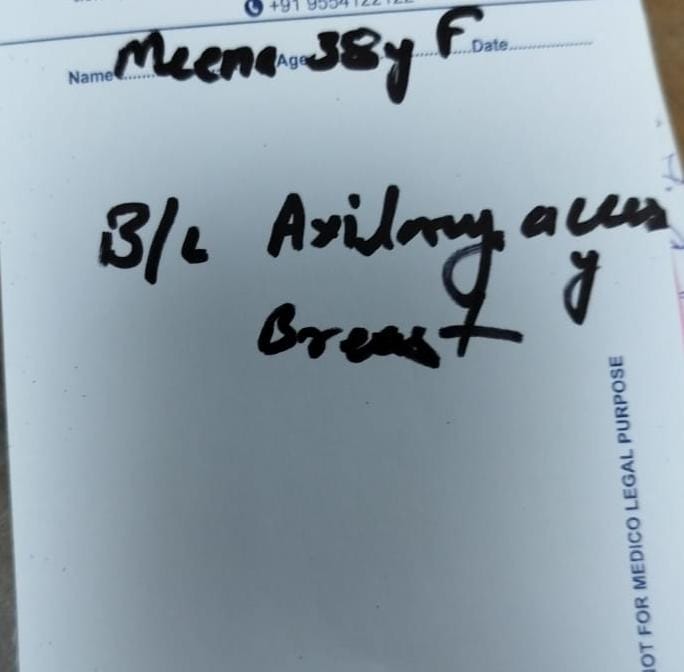 +91 9554122122
Name Meena Age 38y F Date
B/L Axillary access
y
Breast
NOT FOR MEDICO LEGAL PURPOSE